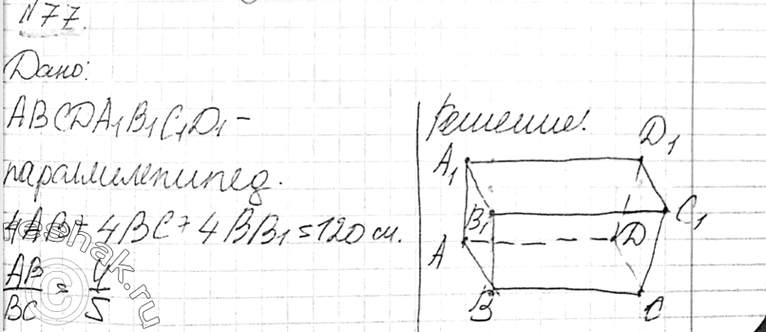 №77.
Дано:
ABCDA₁B₁C₁D₁ -
параллелепипед.
4AB + 4BC + 4BB₁ = 120 см.
AB/BC = 4/5
Решение:
A₁
D₁
B₁
C₁
A
D
B
C
reshak.ru